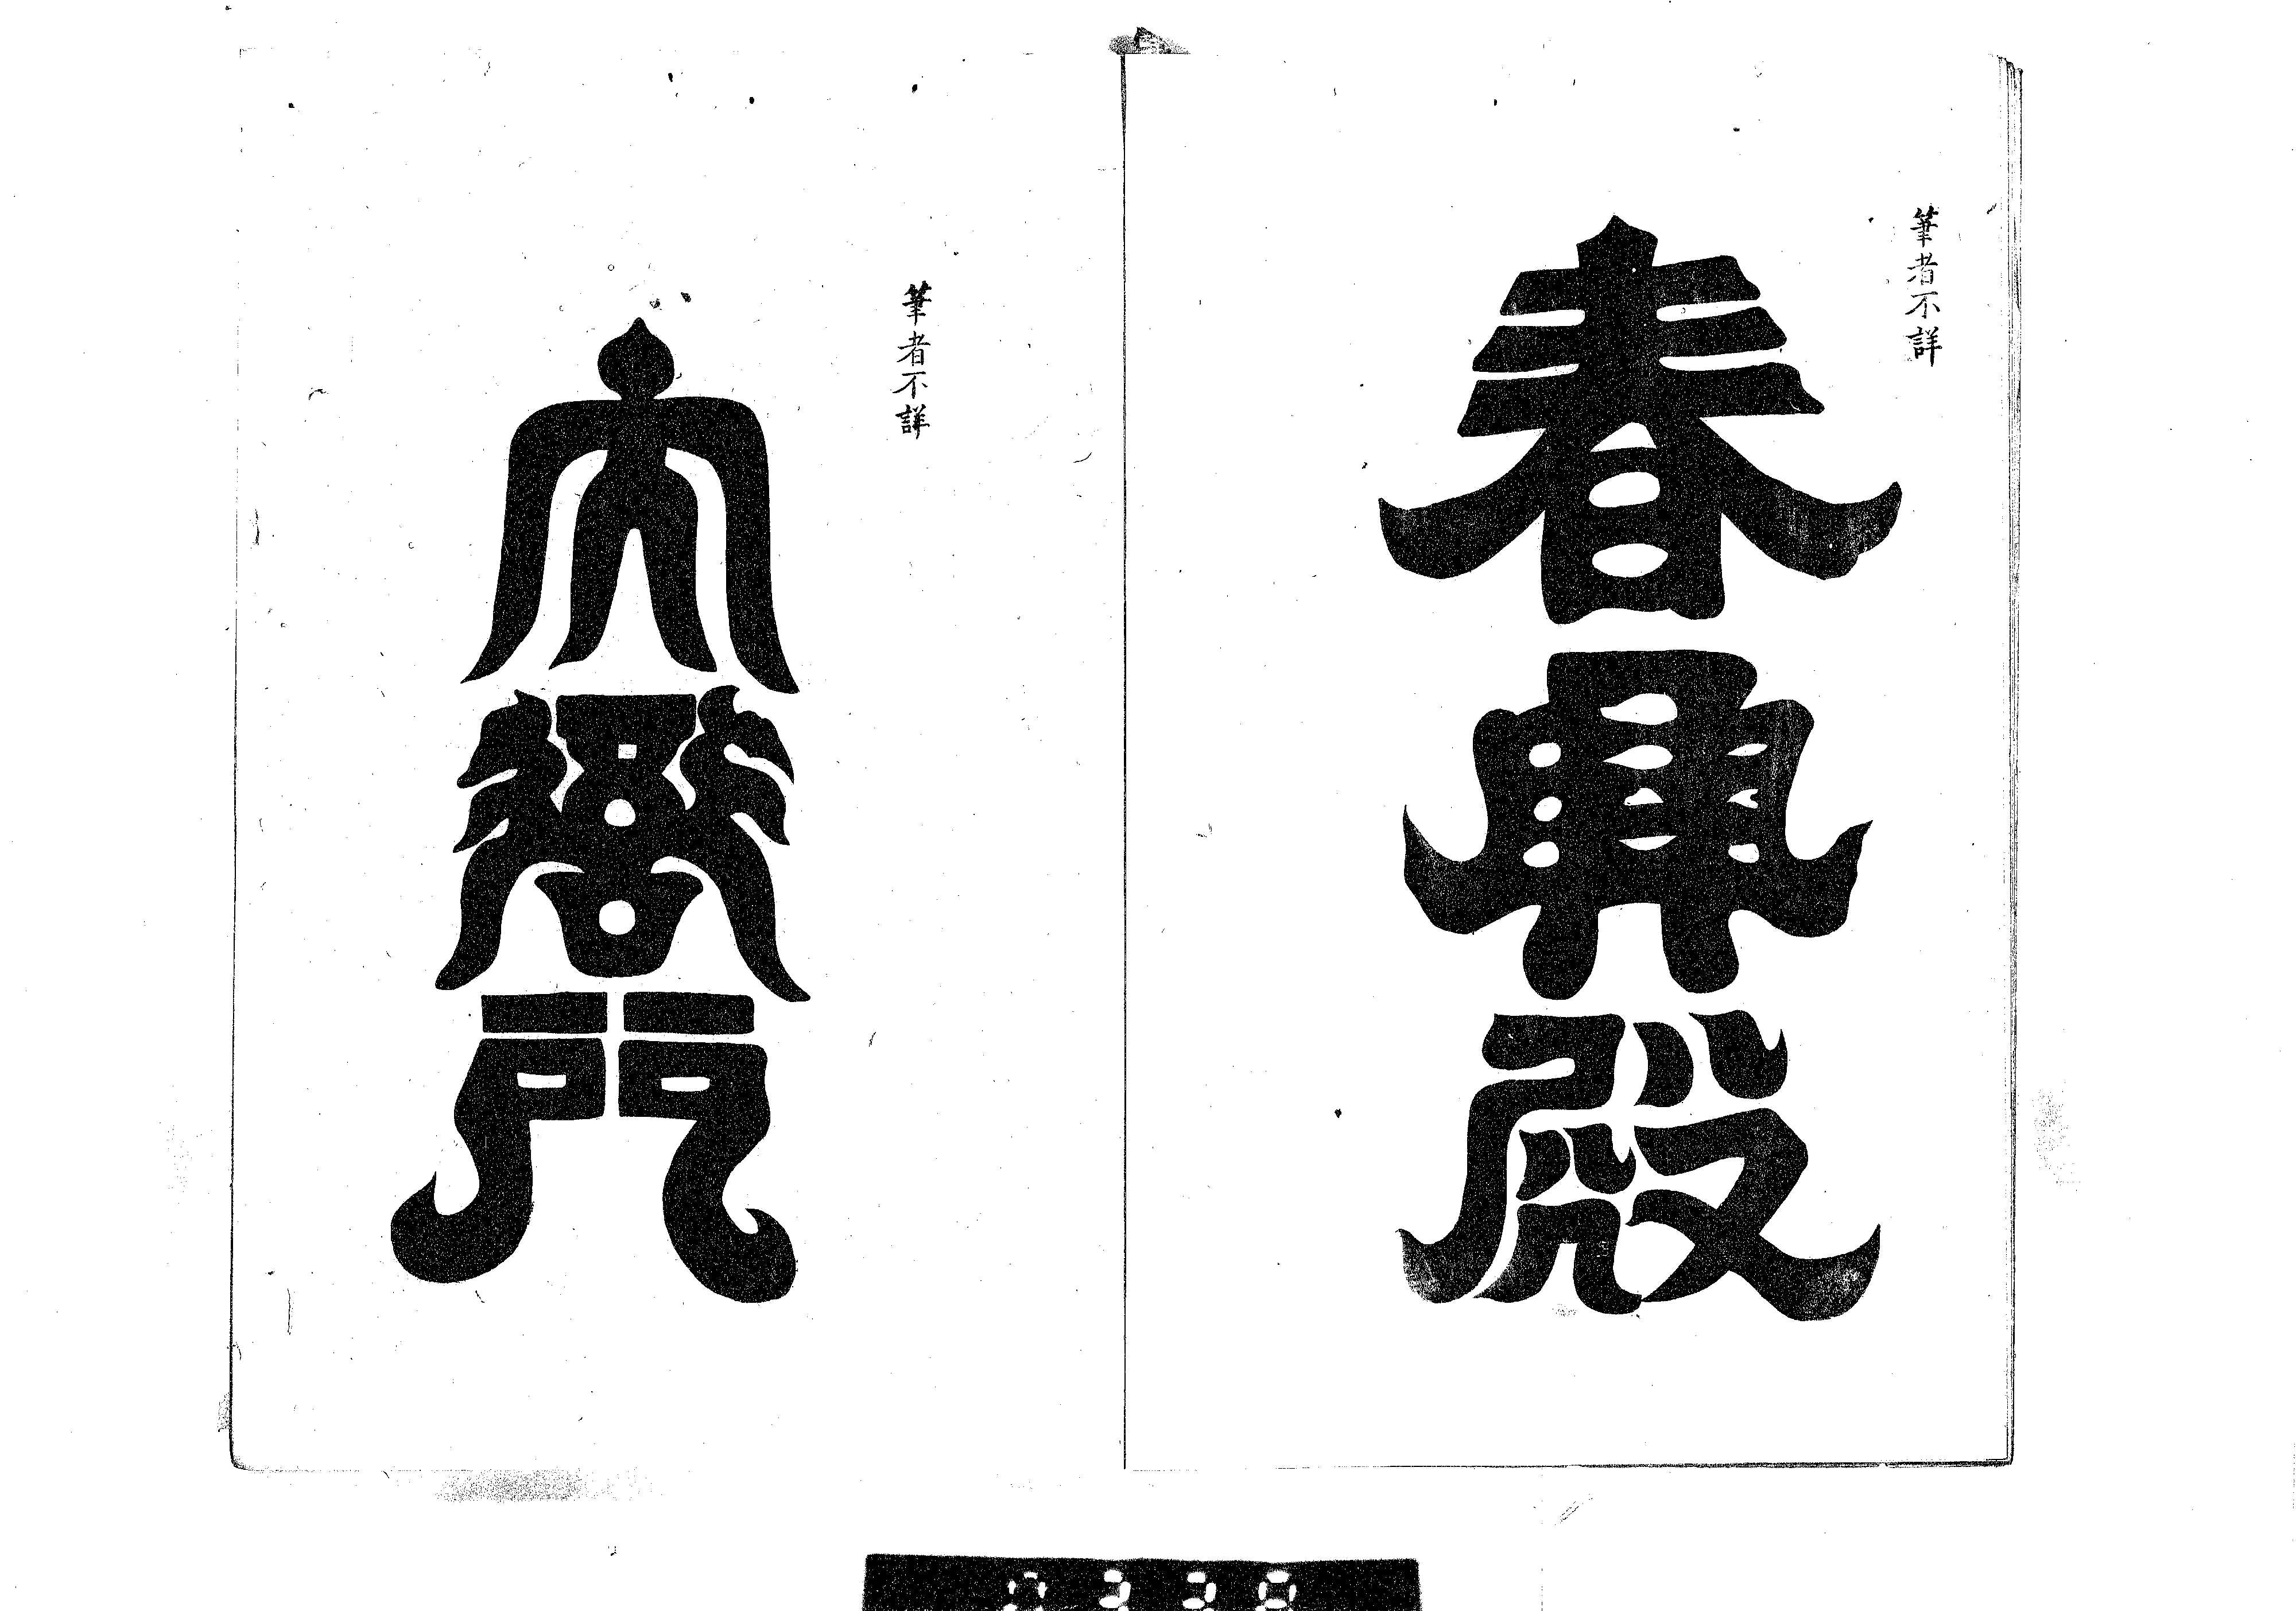 筆者不詳
春興殿
筆者不詳
大
門
0338